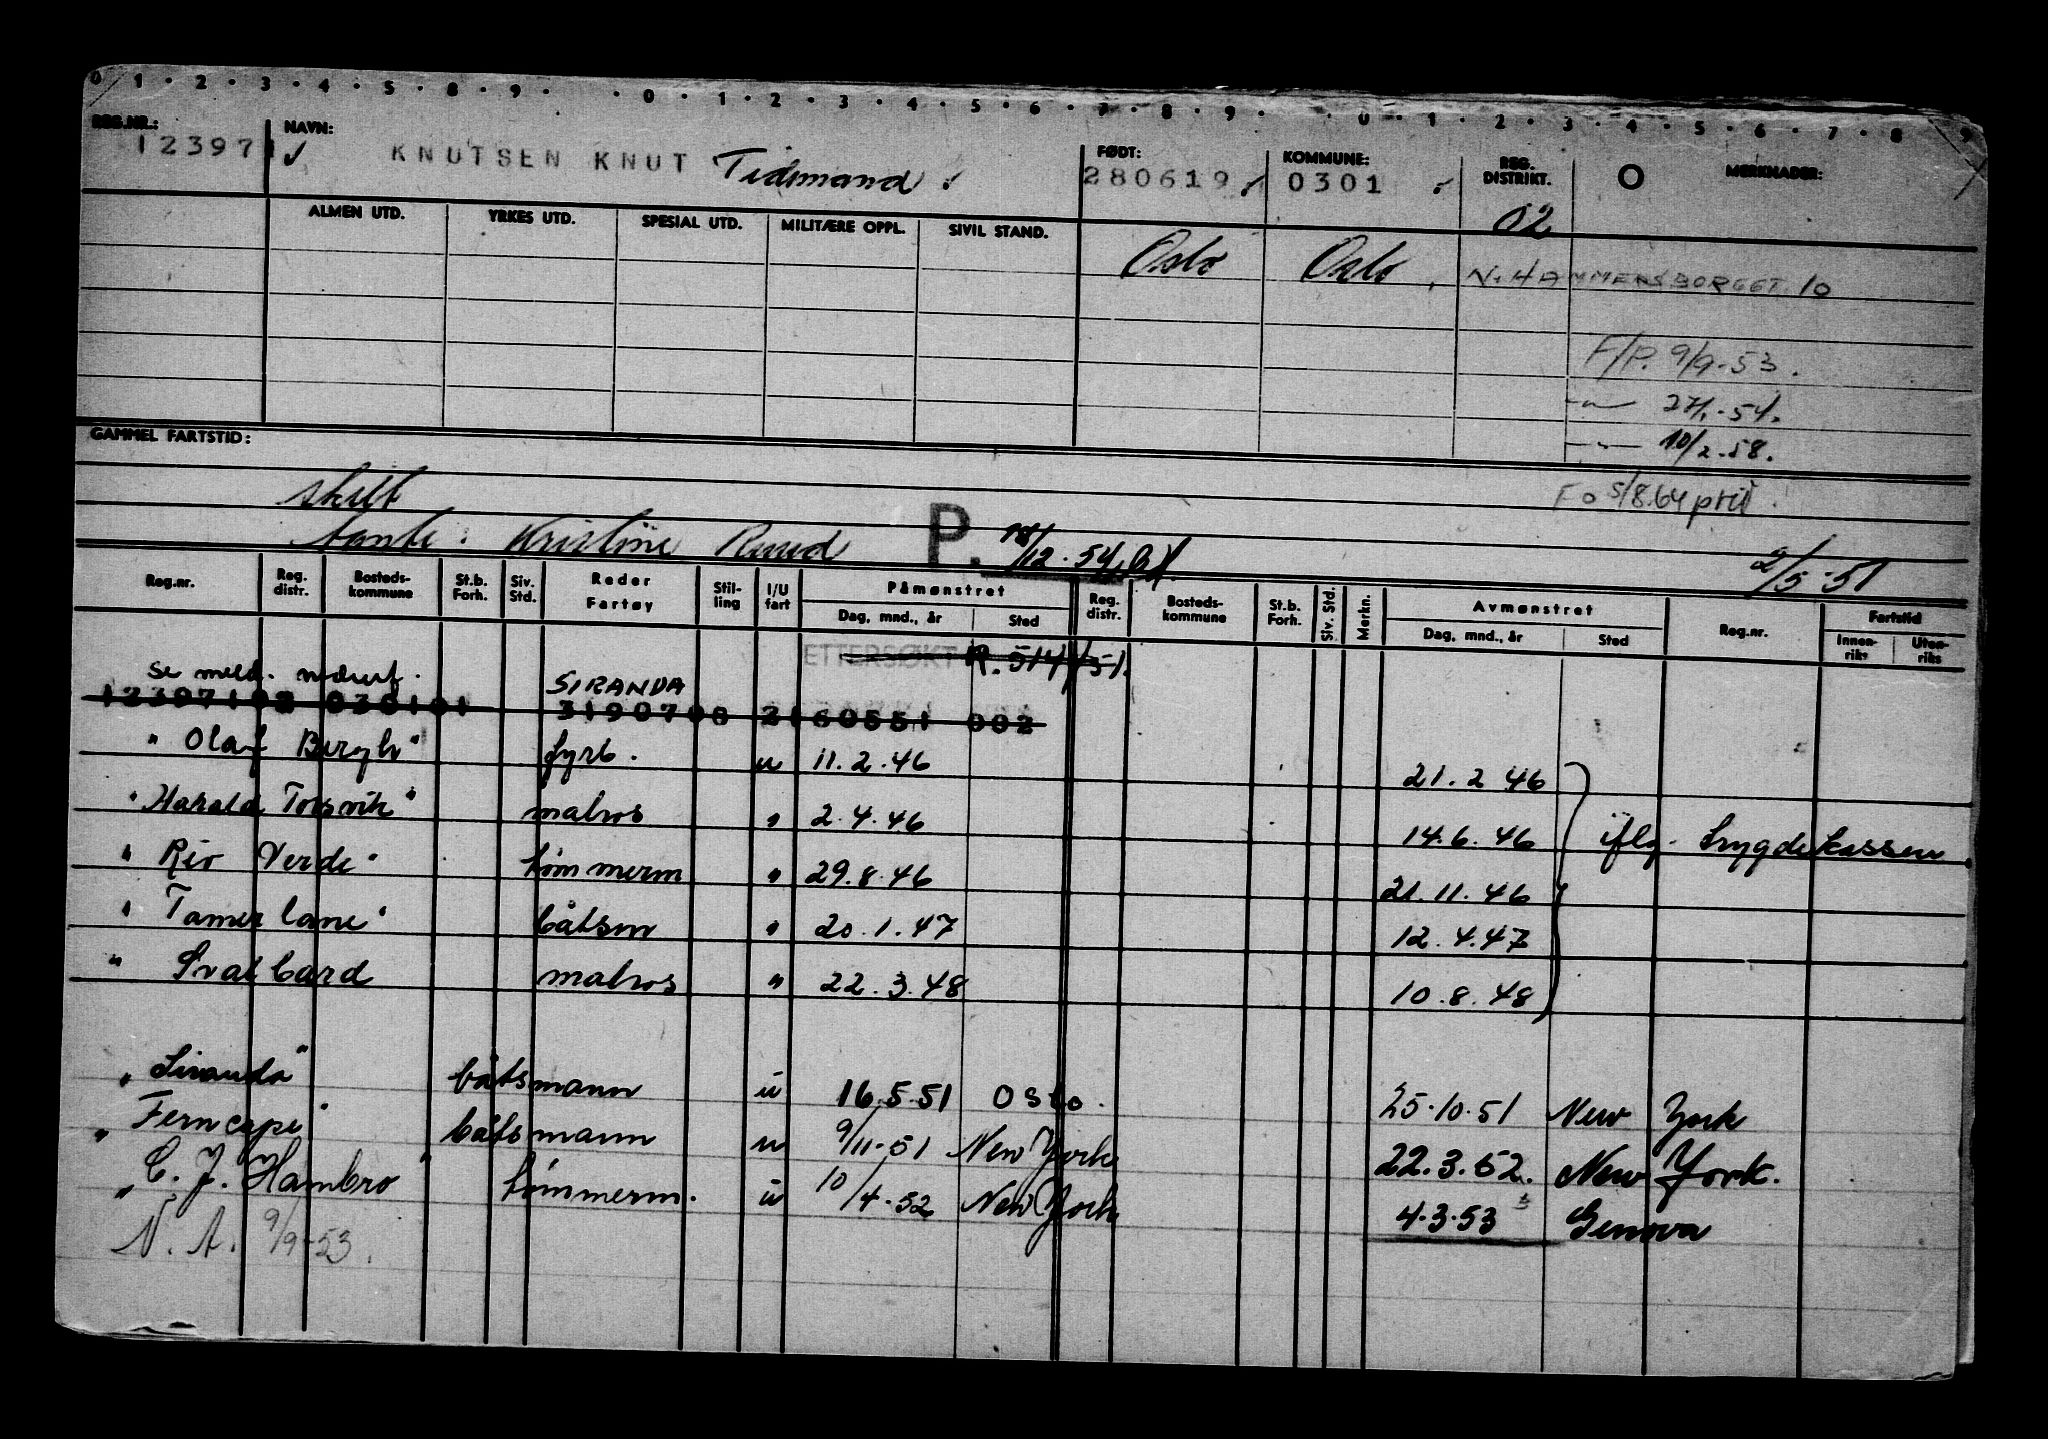 0 1 . 2 . 3 . 4 . 5 . 8 . 9 . . 0 . 1 . 2 . 3 . 4 . 5 . 6 . 7 . 8 . 9 . . 0 . 1 . 2 . 3 . 4 . 5 . 6 . 7 . 8 . 9
REG.NR.: NAVN: FØDT: KOMMUNE: REG. DISTRIKT. O MERKNADER:
123971 KNUTSEN KNUT Tidemand 280619 0301 02
ALMEN UTD. YRKES UTD. SPESIAL UTD. MILITÆRE OPPL. SIVIL STAND.
Oslo Oslo, N. HAMMERSBORGGT. 10
F/P. 9/9-53.
-"- 27/1.-54.
-"- 10/2.58.
GAMMEL FARTSTID:
skilt Fo 5/8.64 priv.
tante: Kristine Ruud P. 18/12.54
2/5-51
Reg.nr. Reg. distr. Bosteds-kommune St.b. Forh. Siv. Std. Reder Fartøy Stil-ling I/U fart Påmønstret Reg. distr. Bosteds-kommune St.b. Forh. Siv. Std. Merkn. Avmønstret Reg.nr. Fartstid
Dag, mnd., år Sted Dag, mnd., år Sted Innen-riks Uten-riks
ETTERSØKT R. 514/51.
se meld. nederst. SIRANDA
123971 02 0301 01 3190708 2160551 002
"Olaf Bergh" fyrb. u 11.2.46 21.2 46
"Harald Torsvik" matros " 2.4.46 14.6.46 iflg. Trygdekassen.
"Rio Verde" tømmerm " 29.8.46 21.11.46
"Tamerlane" båtsm " 20.1.47 12.4.47
" Svalbard matros " 22.3.48 10.8.48
"Siranda" båtsmann u 16.5.51 Oslo. 25.10.51 New York
"Ferncape" båtsmann u 9/11-51 New York 22.3.52. New York.
"C. J. Hambro" tømmerm. u 10/4-52 New York 4.3.53 Genova
N. A. 9/9-53.